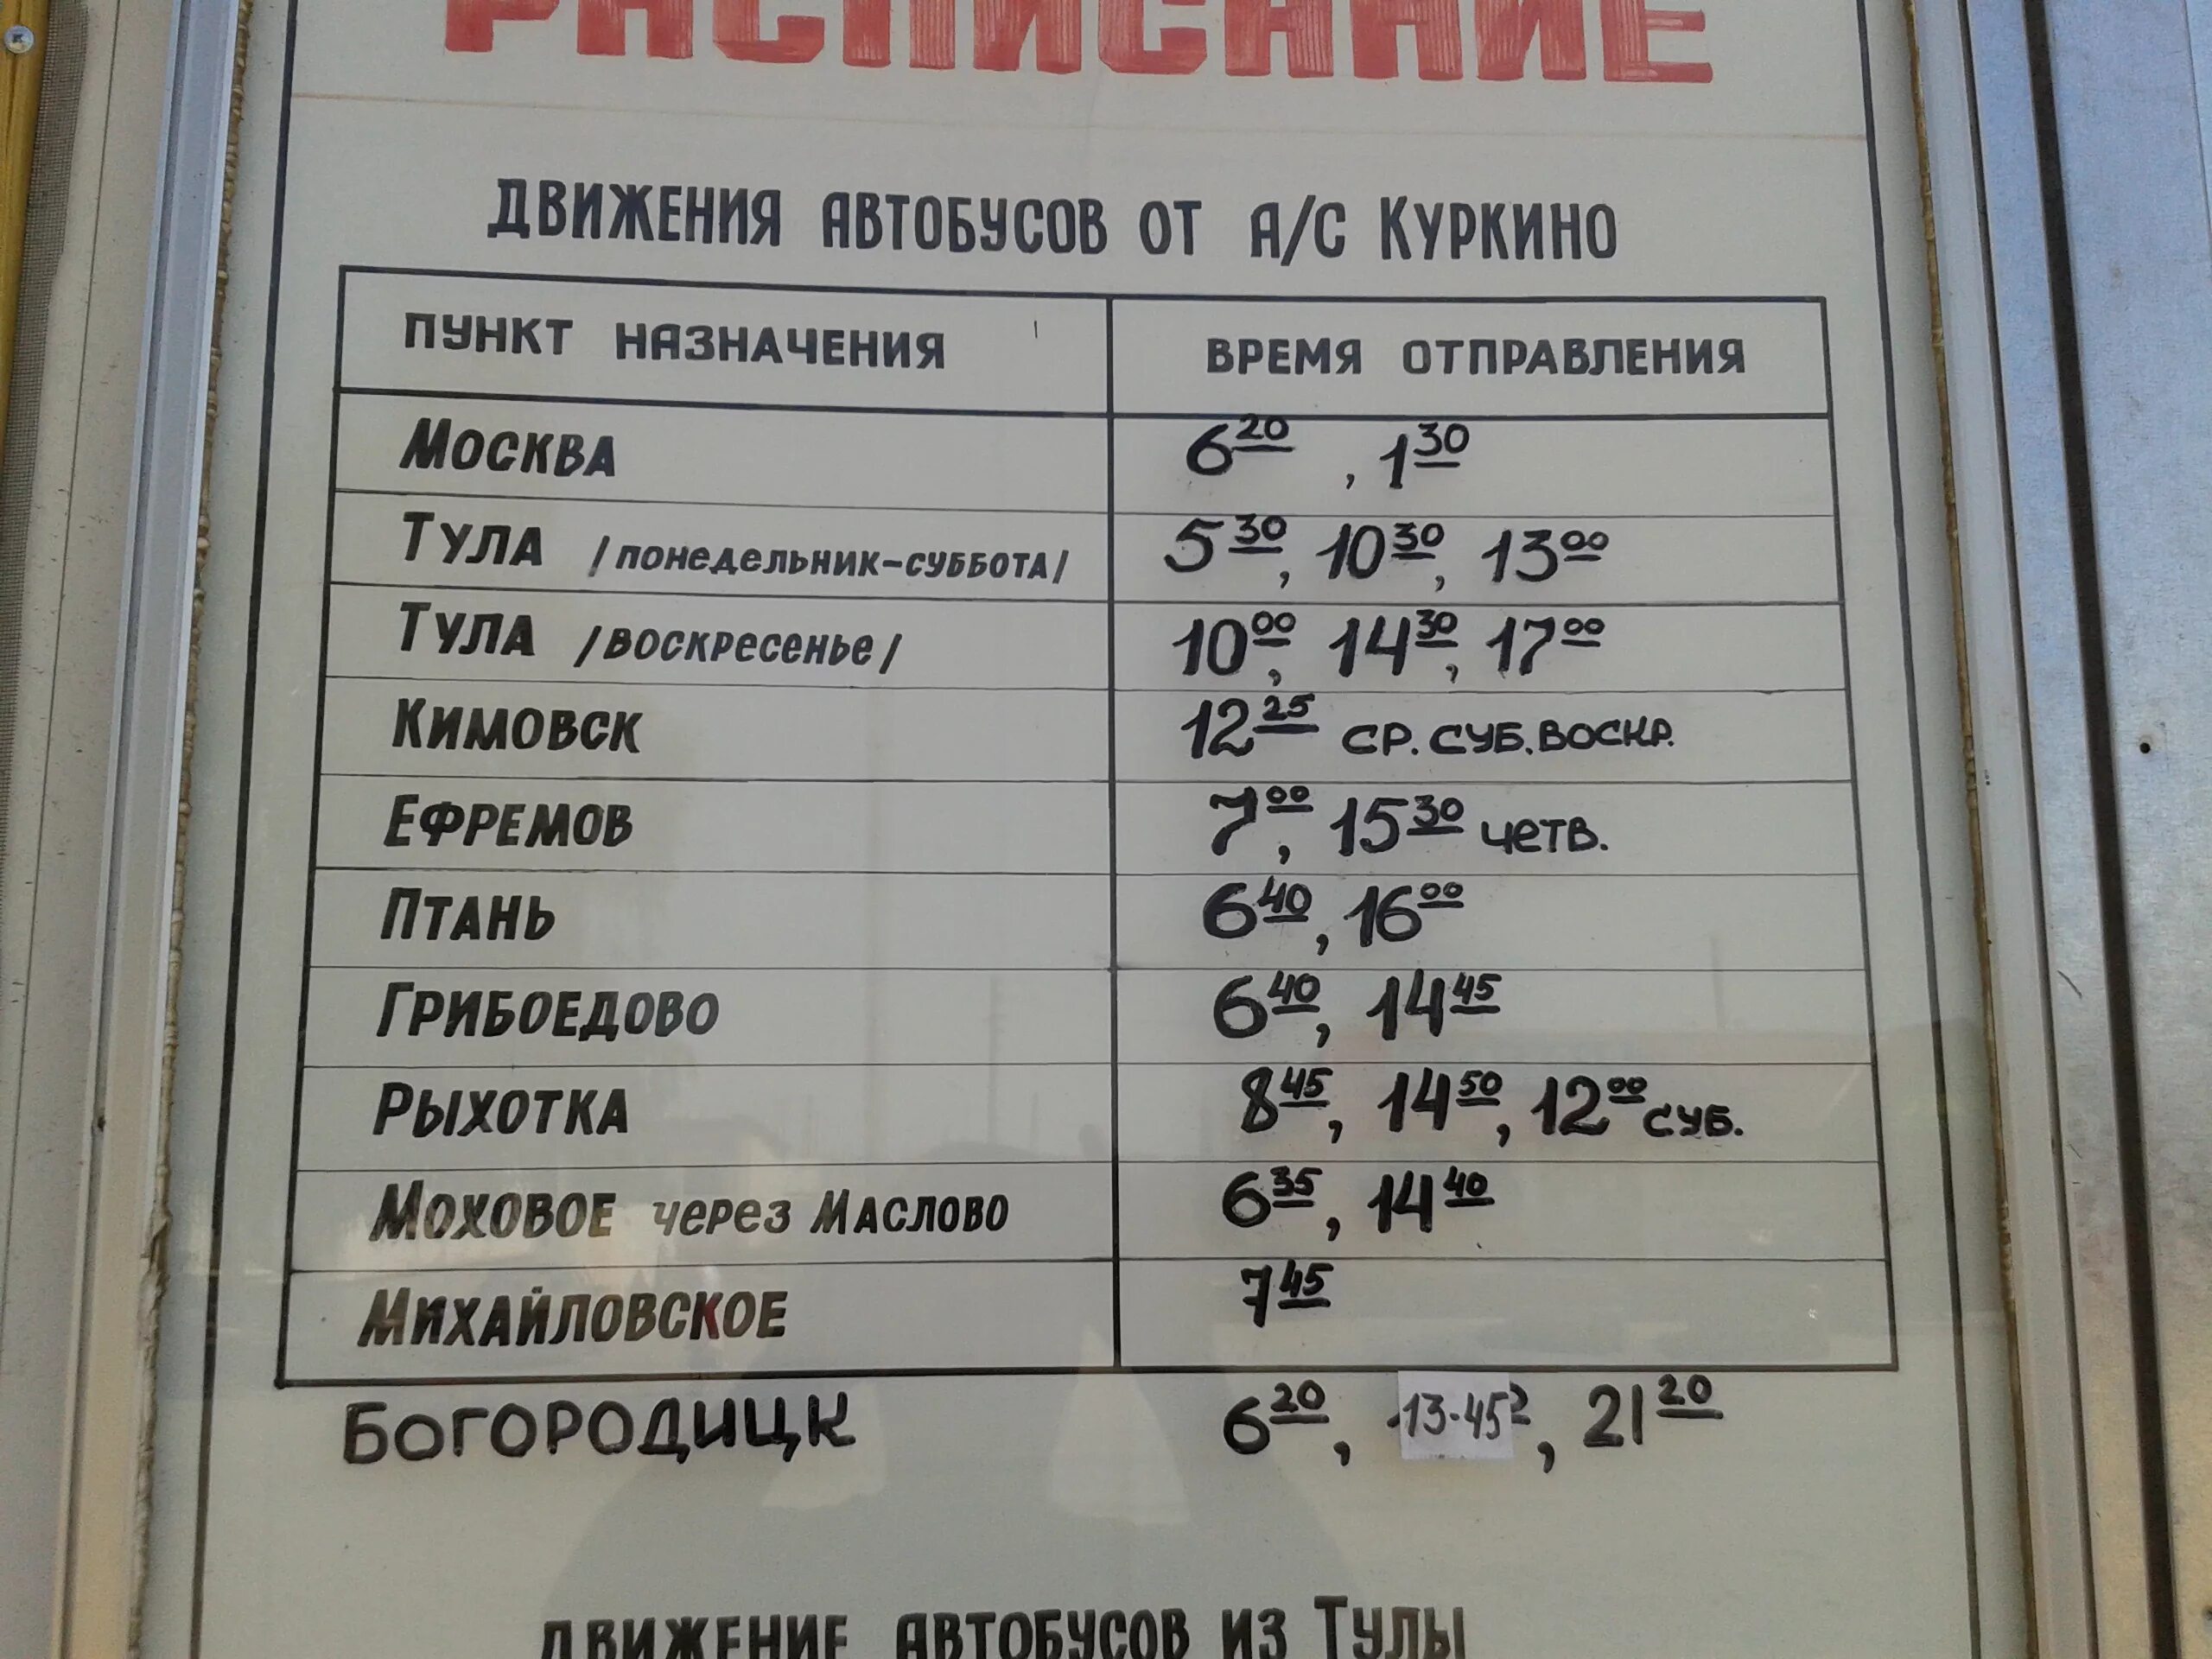 РАСПИСАНИЕ
ДВИЖЕНИЯ АВТОБУСОВ ОТ А/С КУРКИНО
ПУНКТ НАЗНАЧЕНИЯ ВРЕМЯ ОТПРАВЛЕНИЯ
МОСКВА 6²⁰, 1³⁰
ТУЛА /понедельник-суббота/ 5³⁰, 10³⁰, 13⁰⁰
ТУЛА /воскресенье/ 10⁰⁰, 14³⁰, 17⁰⁰
КИМОВСК 12²⁵ СР. СУБ. ВОСКР.
ЕФРЕМОВ 7⁰⁰, 15³⁰ четв.
ПТАНЬ 6⁴⁰, 16⁰⁰
ГРИБОЕДОВО 6⁴⁰, 14⁴⁵
РЫХОТКА 8⁴⁵, 14⁵⁰, 12⁰⁰ СУБ.
МОХОВОЕ через МАСЛОВО 6³⁵, 14⁴⁰
МИХАЙЛОВСКОЕ 7⁴⁵
БОГОРОДИЦК 6²⁰, 13-45, 21²⁰
ДВИЖЕНИЕ АВТОБУСОВ ИЗ ТУЛЫ